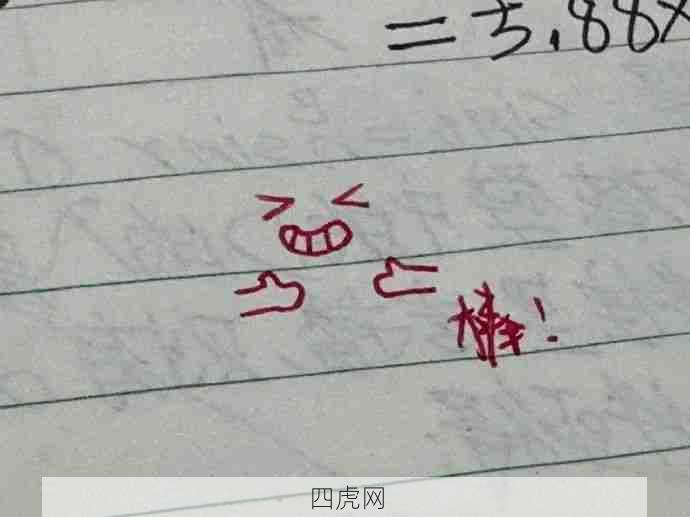 =3.88x
棒!
四虎网